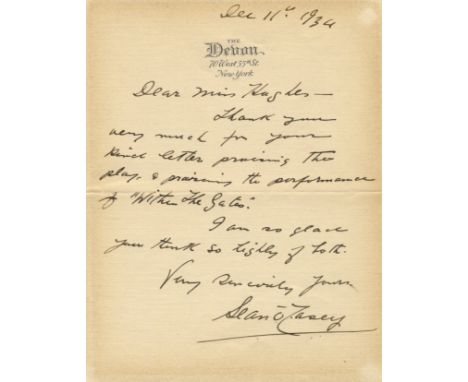 Dec 11th 1934
THE
Devon
70 West 55th St.
New York
Dear Miss Hughes —
Thank you
very much for your
kind letter praising the
play, & praising the performance
of "Within The Gates".
I am so glad
you think so highly of both.
Very sincerely Yours
Sean O'Casey